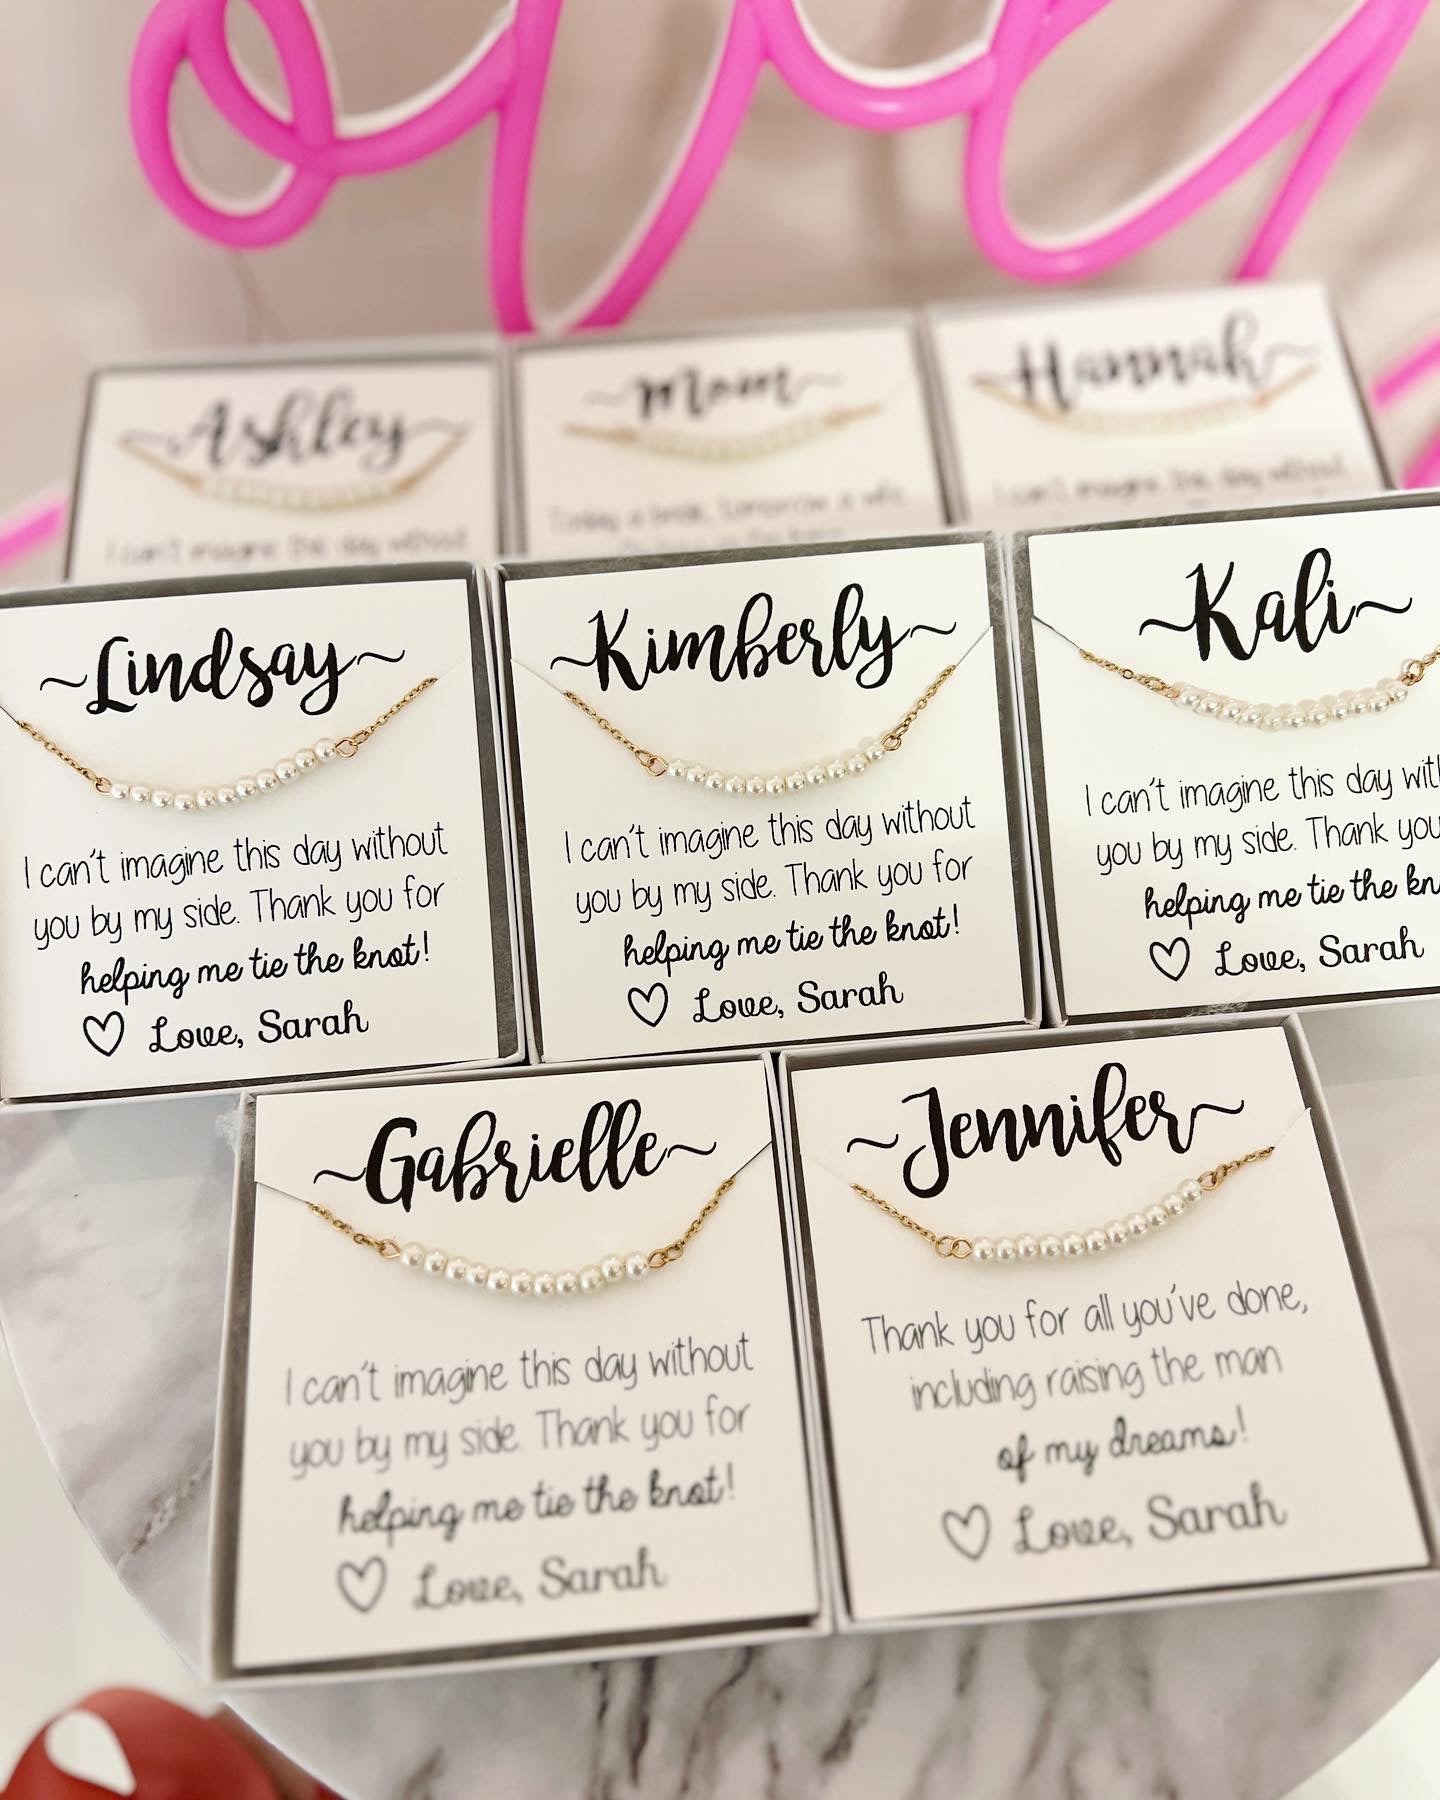 ~Ashley~
I can't imagine the day without
~Mom~
Today a bride, tomorrow a wife,
~Hannah~
I can't imagine the day without
~Lindsay~
I can't imagine this day without
you by my side. Thank you for
helping me tie the knot!
♡ Love, Sarah
~Kimberly~
I can't imagine this day without
you by my side. Thank you for
helping me tie the knot!
♡ Love, Sarah
~Kali~
I can't imagine this day
you by my side. Thank you
helping me tie the
♡ Love, Sarah
~Gabrielle~
I can't imagine this day without
you by my side. Thank you for
helping me tie the knot!
♡ Love, Sarah
~Jennifer~
Thank you for all you've done,
including raising the man
of my dreams!
♡ Love, Sarah